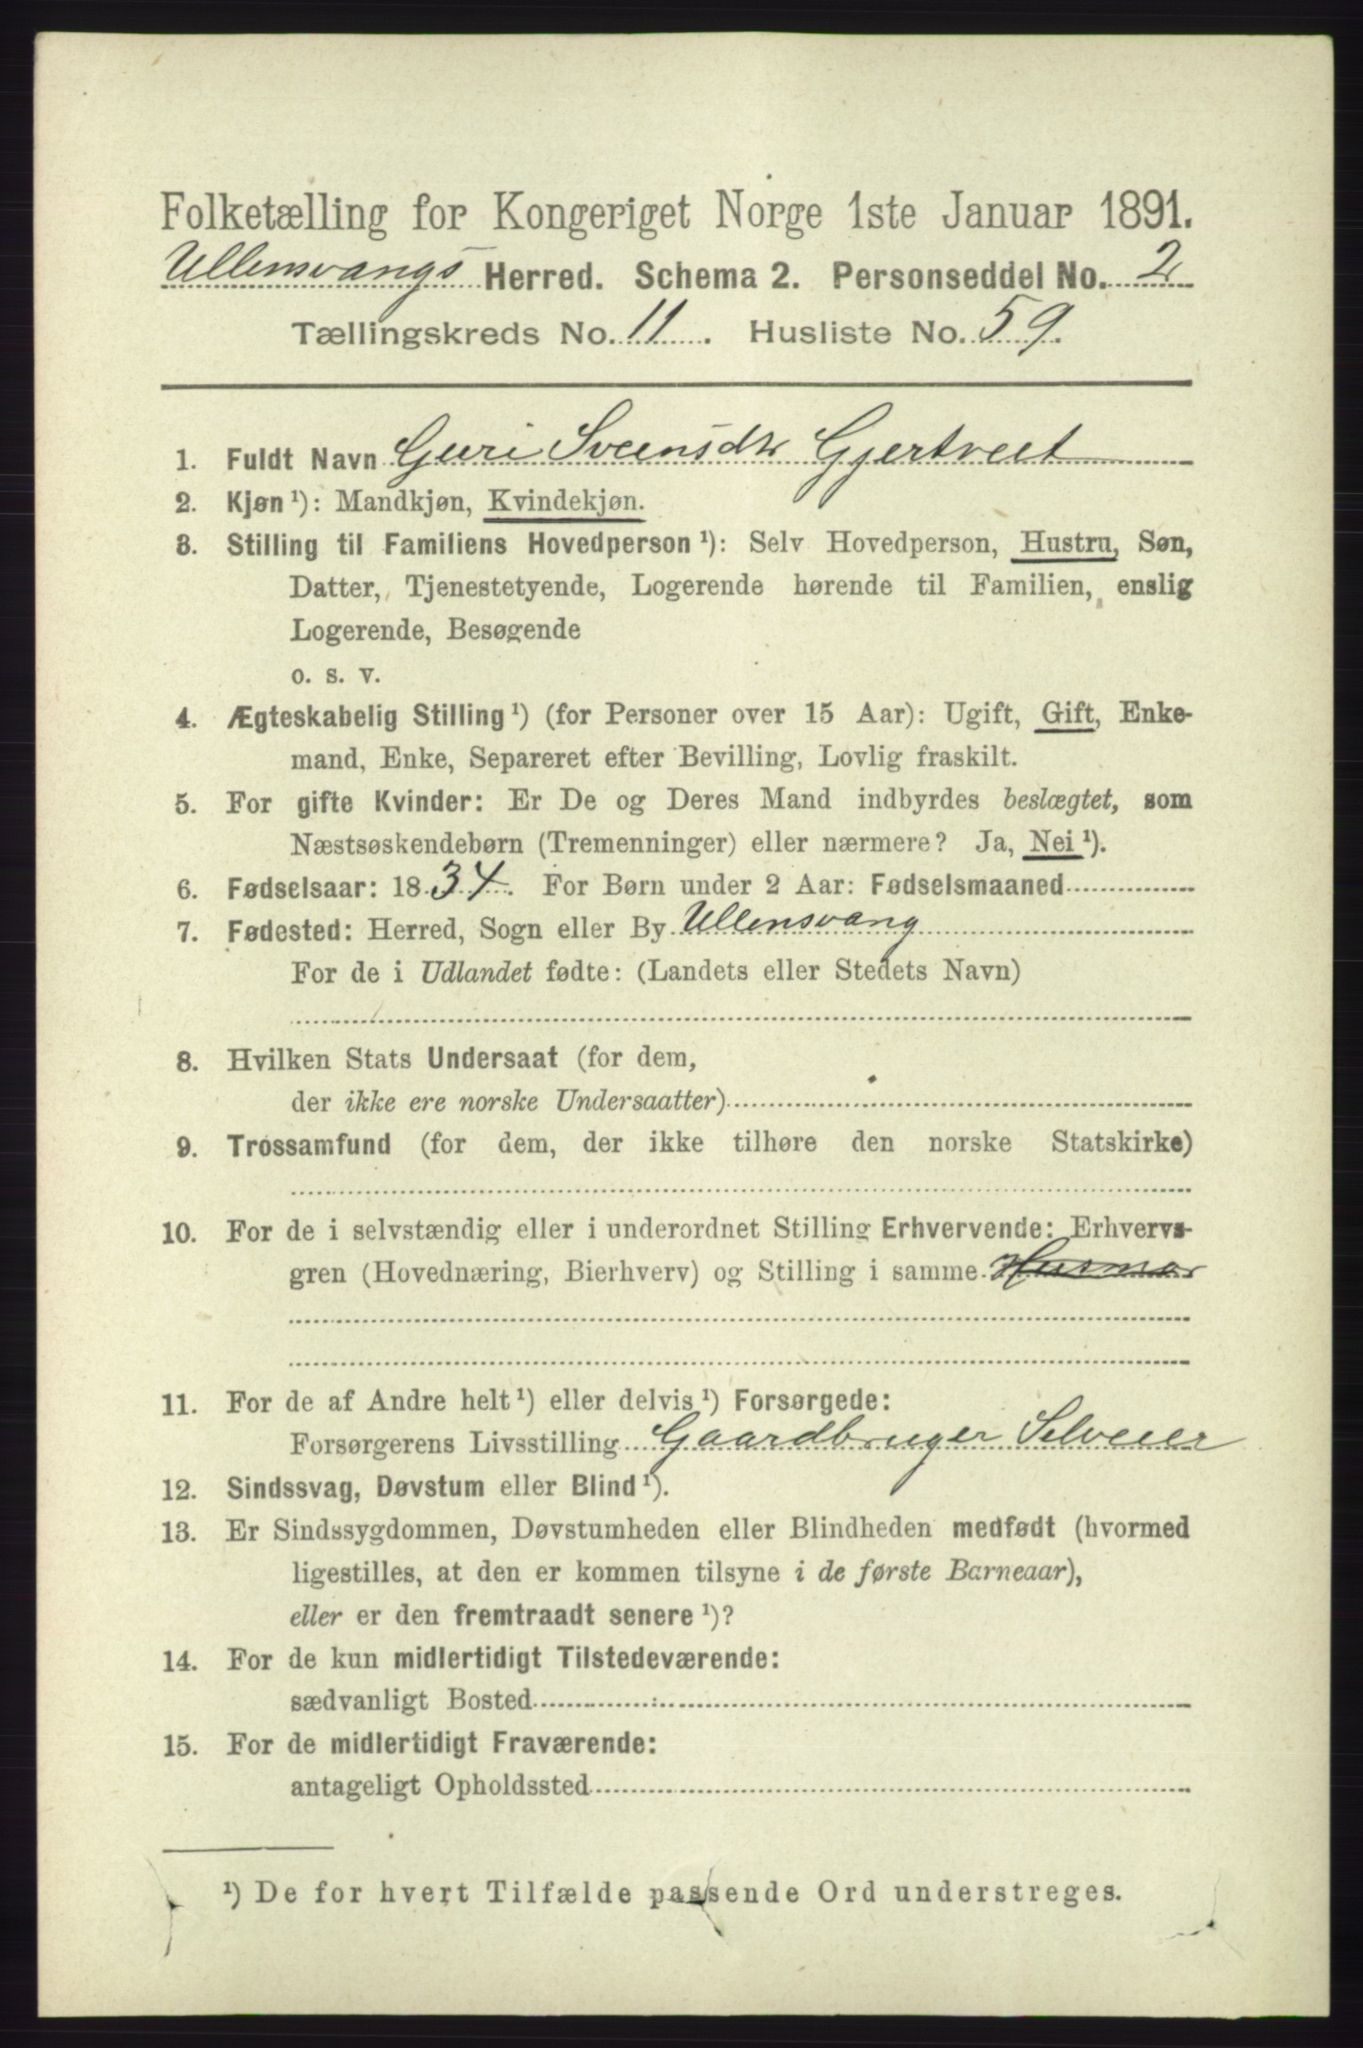 Folketælling for Kongeriget Norge 1ste Januar 1891.
Ullensvangs Herred. Schema 2. Personseddel No. 2
Tællingskreds No. 11. Husliste No. 59.
1. Fuldt Navn Guri Svensdtr Gjertveit
2. Kjøn ¹): Mandkjøn, Kvindekjøn.
3. Stilling til Familiens Hovedperson ¹): Selv Hovedperson, Hustru, Søn,
Datter, Tjenestetyende, Logerende hørende til Familien, enslig
Logerende, Besøgende
o. s. v.
4. Ægteskabelig Stilling ¹) (for Personer over 15 Aar): Ugift, Gift, Enke-
mand, Enke, Separeret efter Bevilling, Lovlig fraskilt.
5. For gifte Kvinder: Er De og Deres Mand indbyrdes beslægtet, som
Næstsøskendebørn (Tremenninger) eller nærmere? Ja, Nei ¹).
6. Fødselsaar: 1834. For Børn under 2 Aar: Fødselsmaaned
7. Fødested: Herred, Sogn eller By Ullensvang
For de i Udlandet fødte: (Landets eller Stedets Navn)
8. Hvilken Stats Undersaat (for dem,
der ikke ere norske Undersaatter)
9. Trossamfund (for dem, der ikke tilhøre den norske Statskirke)
10. For de i selvstændig eller i underordnet Stilling Erhvervende: Erhvervs-
gren (Hovednæring, Bierhverv) og Stilling i samme Husmor
11. For de af Andre helt ¹) eller delvis ¹) Forsørgede:
Forsørgerens Livsstilling Gaardbruger Selveier
12. Sindssvag, Døvstum eller Blind ¹).
13. Er Sindssygdommen, Døvstumheden eller Blindheden medfødt (hvormed
ligestilles, at den er kommen tilsyne i de første Barneaar),
eller er den fremtraadt senere ¹)?
14. For de kun midlertidigt Tilstedeværende:
sædvanligt Bosted
15. For de midlertidigt Fraværende:
antageligt Opholdssted
¹) De for hvert Tilfælde passende Ord understreges.